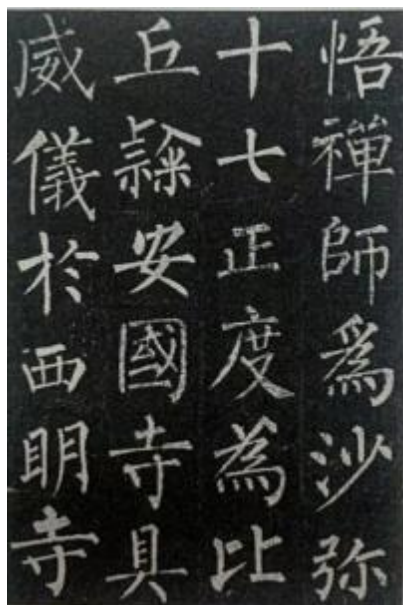 悟禪師爲沙弥
十七正度為比
丘𮥼安國寺具
威儀於西明寺